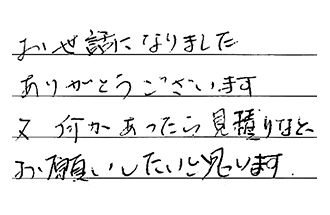 お世話になりました
ありがとうございます
又 何かあったら見積りなど、
お願いしたいと思います.